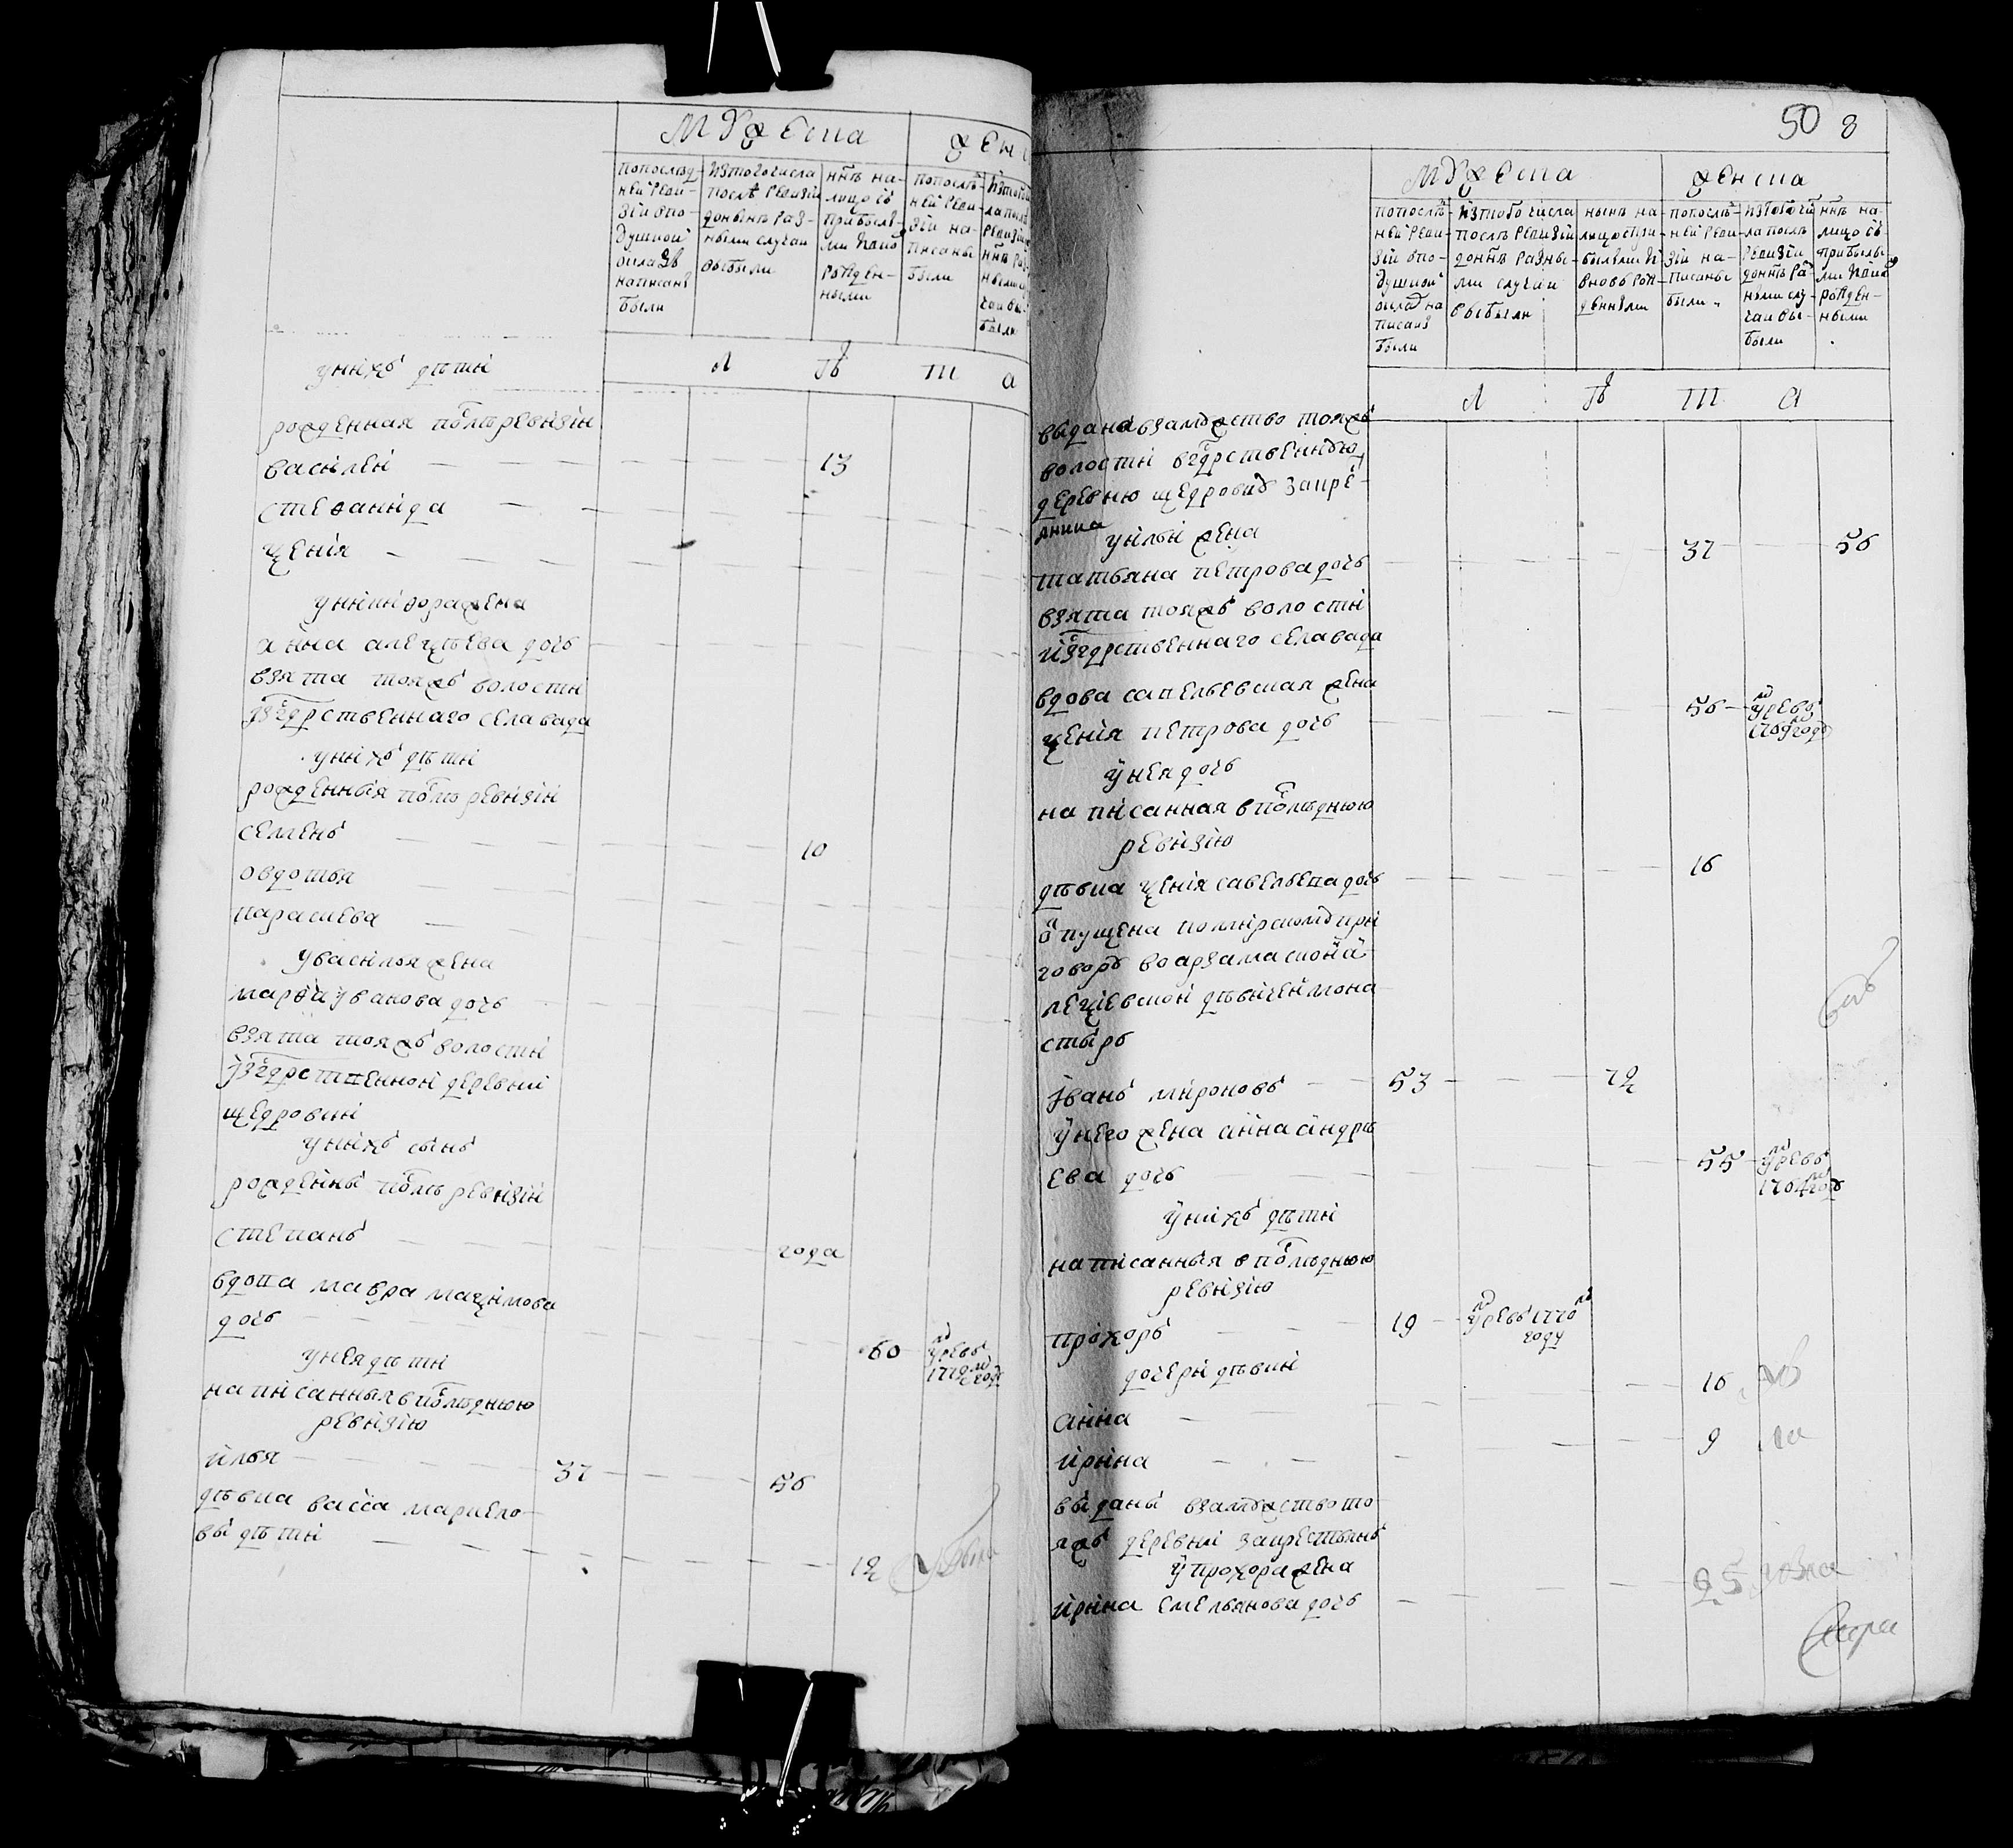 Мужеска
женс
попослед-
ней реви-
зіи впо-
душной
окладъ
написанъ
были
изтогочисла
послѣ ревизіи
донынѣ раз-
ными случаи
выбыли
ннѣ на-
лицо съ
прибылы-
ми и вно
рожден-
ными
попослѣ-
ней реви-
зіи на-
писаны
были
лѣта
у нихъ дѣти
рожденная послѣ ревизіи
василей 13
стеѳанида
ѯенія
у никиѳора жена
анна алеѯѣева дочь
взята тояжъ волости
изгдрственнаго села вада
у нихъ дѣти
рожденныя послѣ ревизіи
семенъ 10
овдотья
параскева
у василья жена
марѳа иванова дочь
взята тояжъ волости
изгдрственной деревни
щедровки
у нихъ сынъ
рожденны послѣ ревизіи
степанъ года
вдова мавра маѯимова
дочь 60 умре въ
у нея дѣти
написанныя в послѣднюю
ревизію
илья 37 56
дѣвка васса маркело-
вы дѣти 12
50 8
Мужеска
женска
попослѣ-
ней реви-
зіи впо-
душной
оклад на
писаны
были
изтого числа
послѣ ревизіи
доннѣ разны-
ми случаи
выбыли
нынѣ на-
лицо спри-
былыми и
вновь рож-
денными
попослѣ-
ней реви-
зіи на-
писаны
были
изтого чи
ла послѣ
ревизіи
доннѣ ра
ными слу-
чаи вы-
были
ннѣ на-
лицо съ
прибылы-
ми и вно
рожден-
ными
лѣта
выдана взамужство тояжъ
волости вгдрственную
деревню щедровку за кре-
янина
у ильи жена
татьяна петрова дочь 37 56
взята тояжъ волости
изгдрственнаго села вада
вдова савельевская жена
ѯенія петрова дочь 56 умре въ
у нея дочь
написанная в послѣднюю
ревизію
дѣвка ѯенія савельева дочь 16
отпущена помирскому при
говору во арзамаской а
леѯѣевской дѣвичей мона
стырь
иванъ мироновъ 53 72
у него жена анна андрѣ
ева дочь 55 умре въ
1764 году
у нихъ дѣти
написанныя в послѣднюю
ревизію
прохоръ 19 умре въ 1770
году
дочери дѣвки
анна 16
ирина 9
выданы взамужство то
яжъ деревни за крестьянъ
у прохора жена
ирина емельянова дочь 25